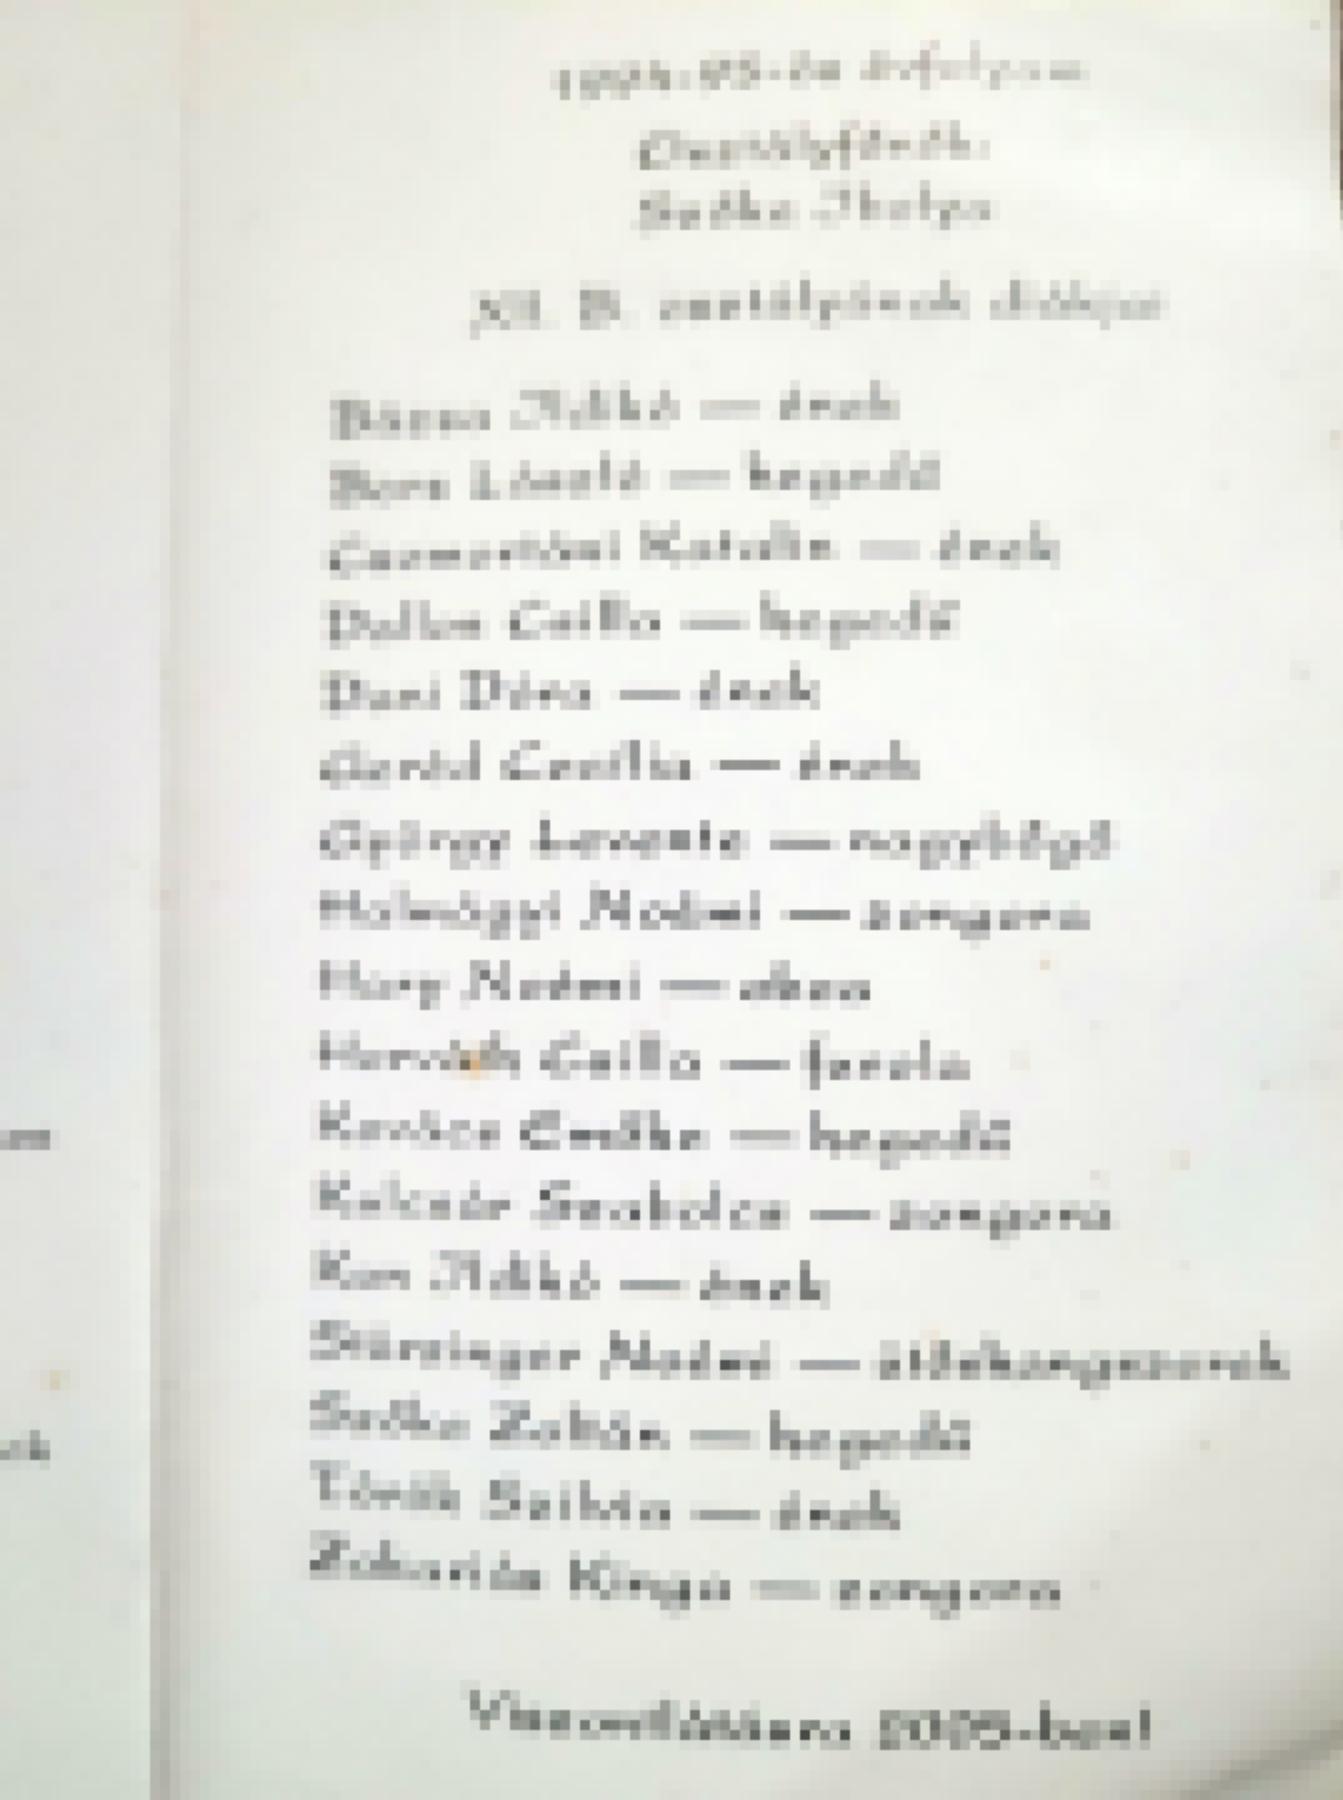 1994-95-ös évfolyam
Osztályfőnök:
Szőke Ibolya
XII. B. osztályának diákjai
Ildikó — ének
Bors László — hegedű
Csomortáni Katalin — ének
Dallos Csilla — hegedű
Dani Dóra — ének
Geréd Cecília — ének
György Levente — nagybőgő
Halmágyi Noémi — zongora
Háry Noémi — oboa
Horváth Csilla — fuvola
Kovács Emőke — hegedű
Kulcsár Szabolcs — zongora
Ildikó — ének
Stürzinger Noémi — ütőshangszerek
Szőke Zoltán — hegedű
Török Szilvia — ének
Zakariás Kinga — zongora
Viszontlátásra 2005-ben!